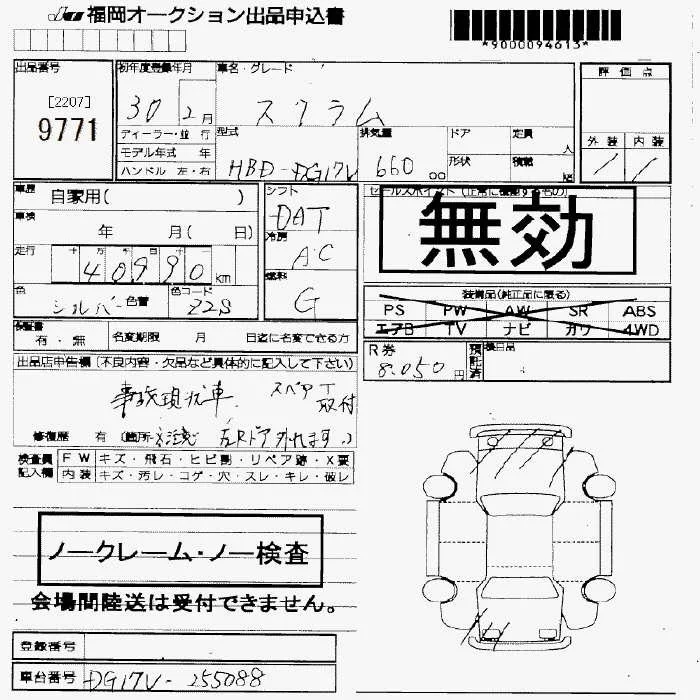 福岡オークション出品申込書
*9000094613*
出品番号
[2207]
9771
初年度登録年月
30 2月
車名・グレード
スクラム
評価点
外装 内装
ディーラー・並行
モデル年式 年
ハンドル 左・右
型式
HBD-DG17V
排気量
660 00
ドア
形状
定員 人
積載 kg
車歴
自家用( )
車検
年 月( 日)
走行
十 万 千 百 十
40990 km
色
シルバー 色替
色コード
Z2S
シフト
DAT
冷房
AC
燃料
G
セールスポイント(正常に機能する名の)
無効
装備品(純正品に限る)
PS PW AW SR ABS
エアB TV ナビ カワ 4WD
保証書
有・無
名変期限 月 日迄に名変できる方
R券
8.050円
預託済
後日品
出品店申告欄(不良内容・欠品など具体的に記入して下さい)
事故現状車 スペアT
取付
修復歴 有 (箇所 左Rドア外れます。)
検査員記入欄
FW キズ・飛石・ヒビ割・リペア跡・X要
内装 キズ・汚レ・コゲ・穴・スレ・キレ・破レ
ノークレーム・ノー検査
会場間陸送は受付できません。
登録番号
車台番号 DG17V-255088